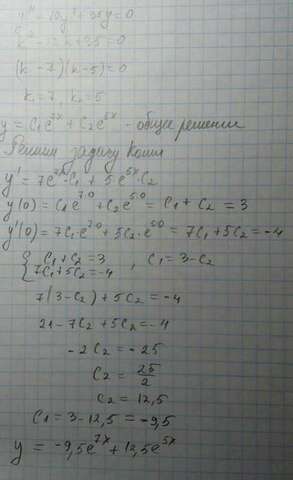 y'' - 12y' + 35y = 0
k² - 12k + 35 = 0
(k - 7)(k - 5) = 0
k₁ = 7, k₂ = 5
y = C₁e^{7x} + C₂e^{5x} - общее решение
Решим задачу Коши
y' = 7e^{7x}·C₁ + 5e^{5x}·C₂
y(0) = C₁e^{7·0} + C₂e^{5·0} = C₁ + C₂ = 3
y'(0) = 7C₁·e^{7·0} + 5C₂·e^{5·0} = 7C₁ + 5C₂ = -4
{ C₁ + C₂ = 3 , C₁ = 3 - C₂
7C₁ + 5C₂ = -4
7(3 - C₂) + 5C₂ = -4
21 - 7C₂ + 5C₂ = -4
-2C₂ = -25
C₂ = 25/2
C₂ = 12,5
C₁ = 3 - 12,5 = -9,5
y = -9,5e^{7x} + 12,5e^{5x}